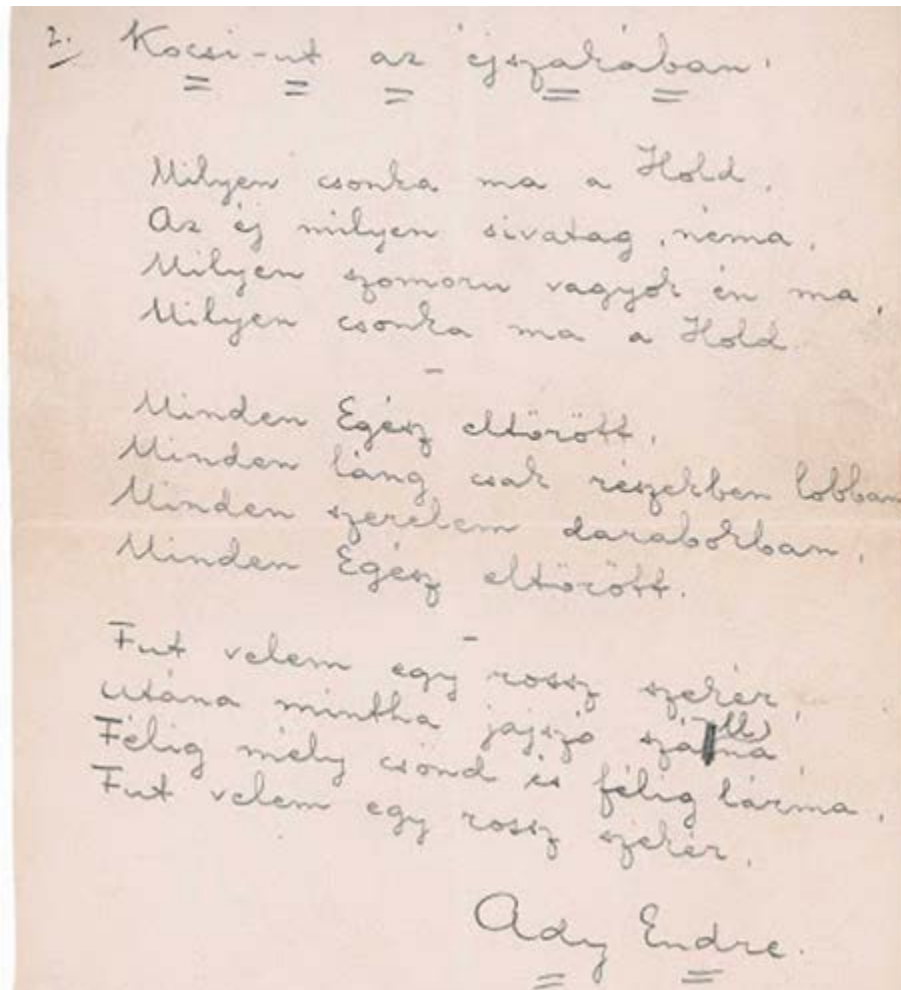 2. Kocsi-ut az éjszakában.
Milyen csonka ma a Hold,
Az éj milyen sivatag, néma,
Milyen szomoru vagyok én ma,
Milyen csonka ma a Hold.
Minden Egész eltörött,
Minden láng csak részekben lobban,
Minden szerelem darabokban,
Minden Egész eltörött.
Fut velem egy rossz szekér,
utána mintha jajszó szállna,
Félig mély csönd és félig lárma,
Fut velem egy rossz szekér.
Ady Endre.